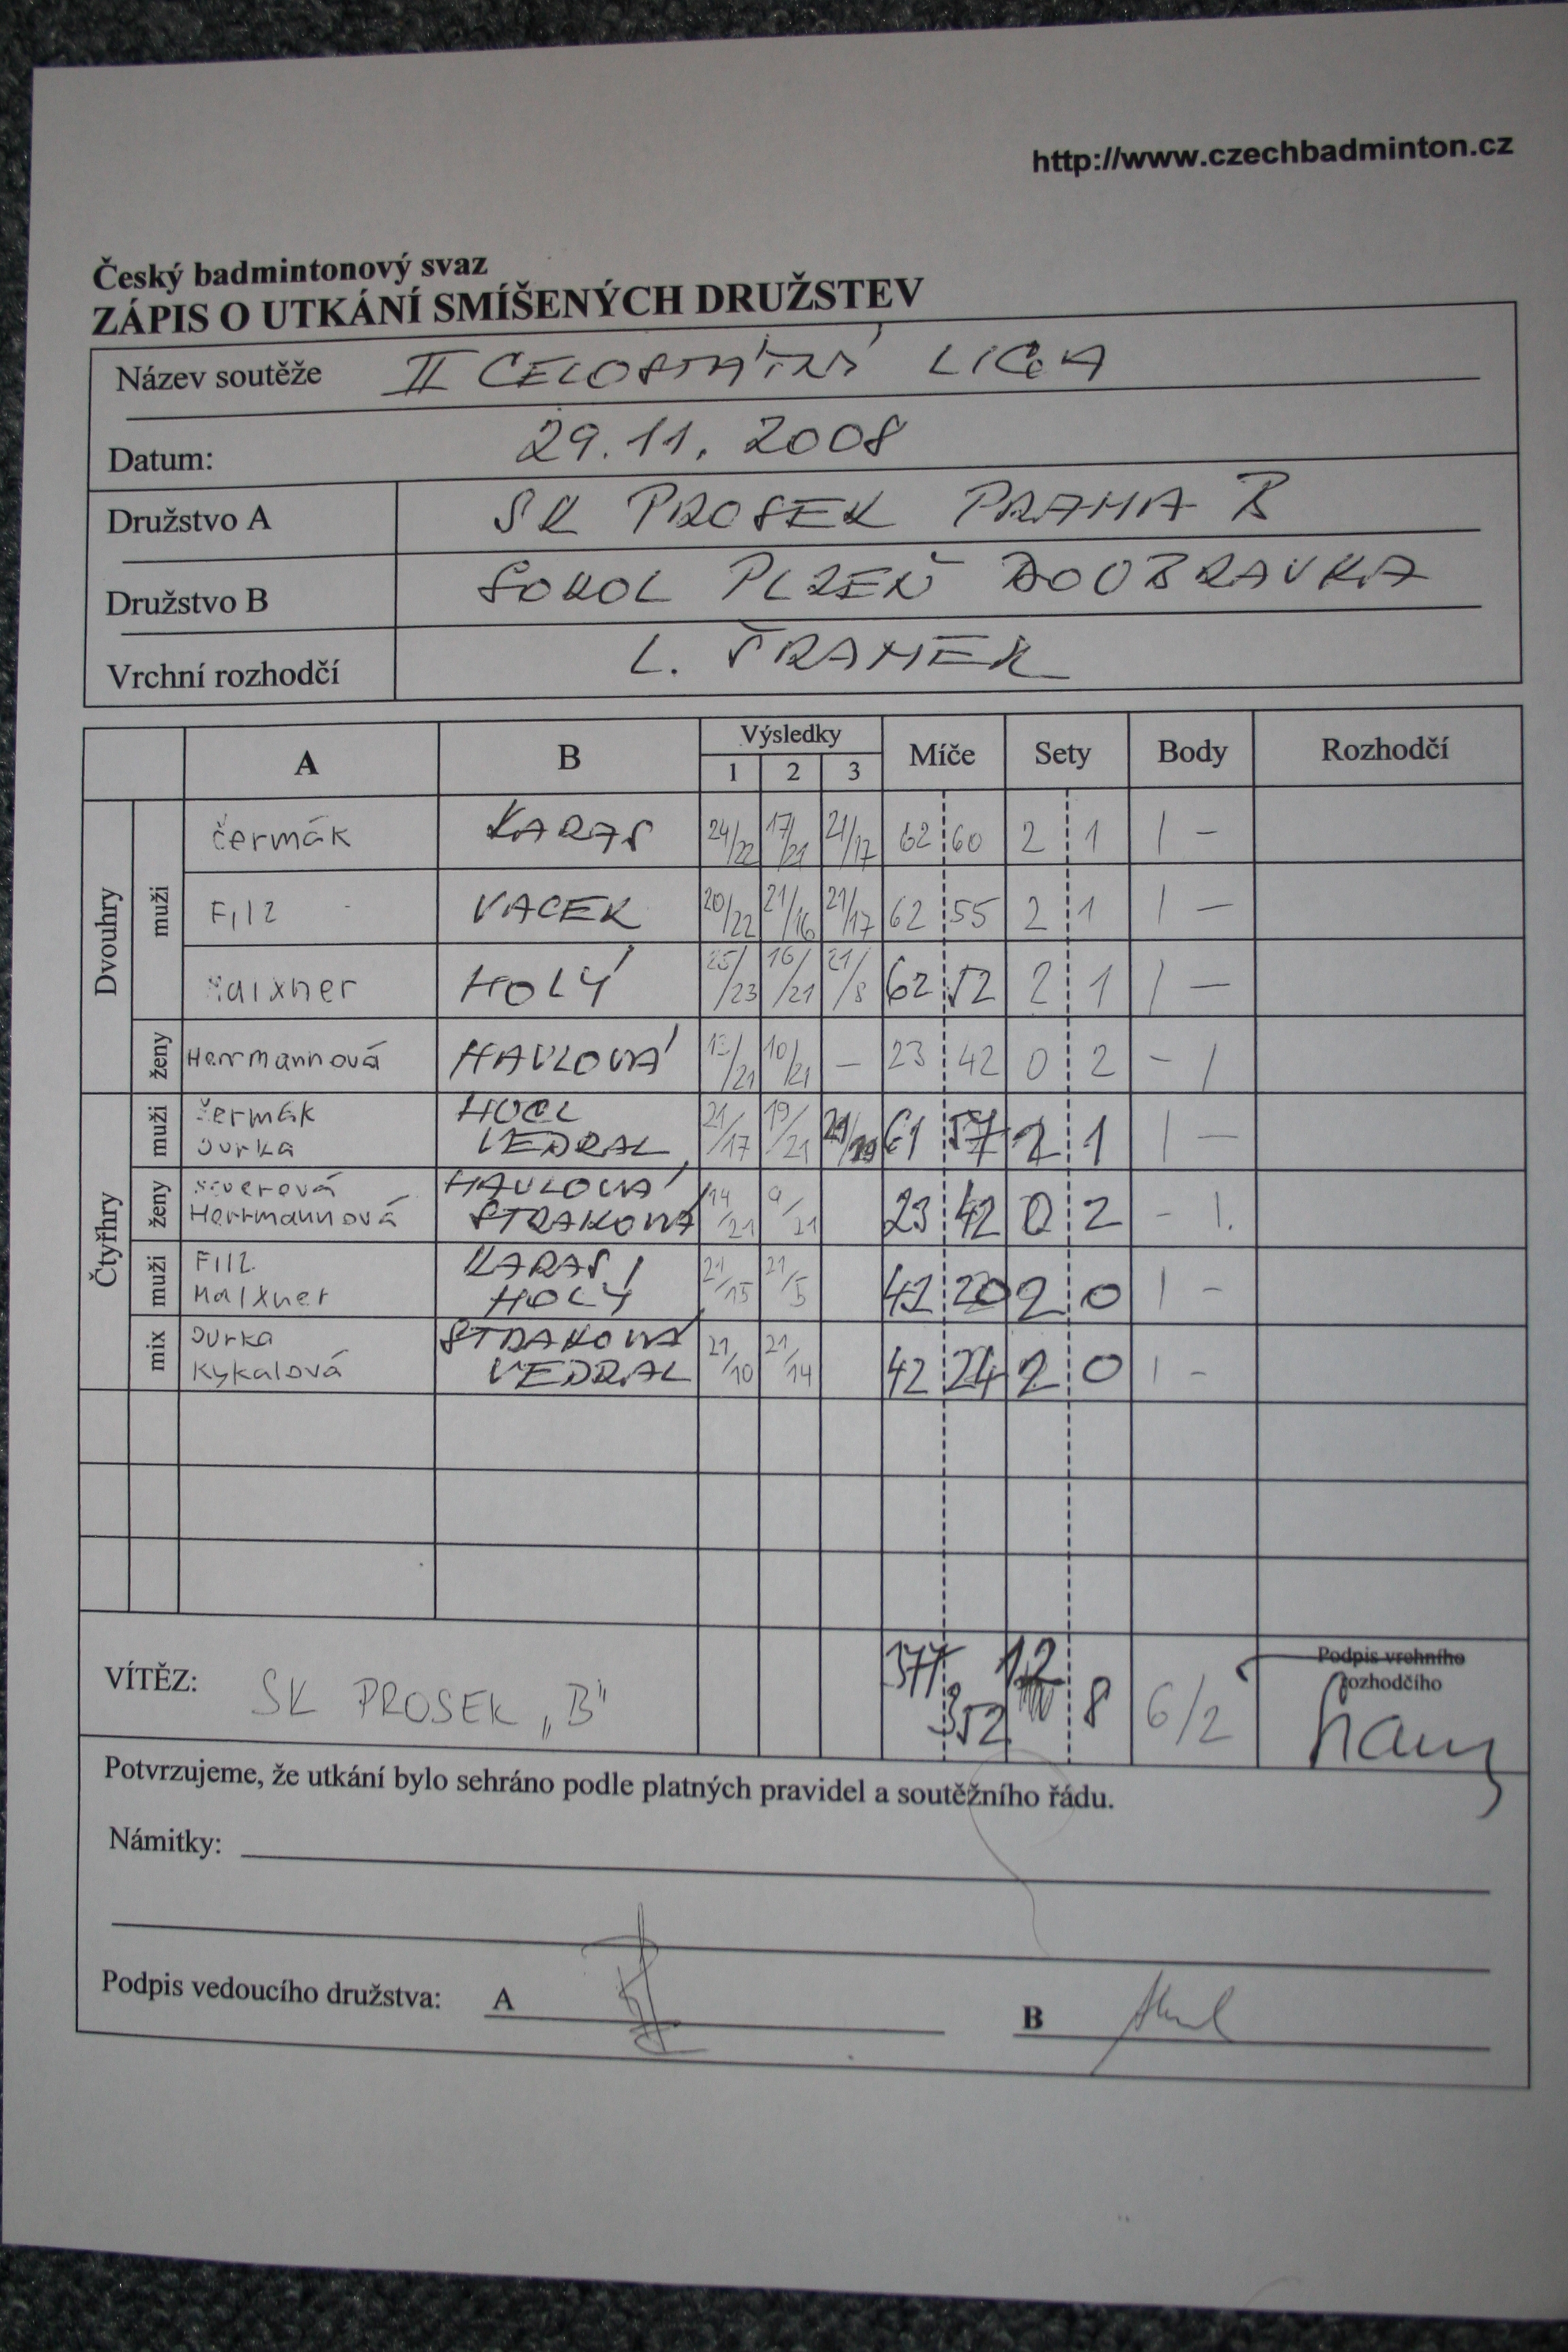 http://www.czechbadminton.cz
Český badmintonový svaz
ZÁPIS O UTKÁNÍ SMÍŠENÝCH DRUŽSTEV
Název soutěže II CELOSTÁTNÍ LIGA
Datum: 29.11.2008
Družstvo A SK PROSEK PRAHA B
Družstvo B SOKOL PLZEŇ DOUBRAVKA
Vrchní rozhodčí L. ŠRAMEK
A B Výsledky Míče Sety Body Rozhodčí
1 2 3
Dvouhry
muži
čermák KARAS 24/22 17/21 21/17 62 60 2 1 1 –
Filz VACEK 20/22 21/16 21/17 62 55 2 1 1 –
Maixner HOLÝ 25/23 16/21 21/8 62 52 2 1 1 –
ženy
Herrmannová HAVLOVÁ 13/21 10/21 – 23 42 0 2 – 1
Čtyřhry
muži
čermák HOCL
Jurka VEDRAL 21/17 19/21 21/19 61 57 2 1 1 –
ženy
HAVLOVÁ
Herrmannová STRAKOVÁ 14/21 9/21 23 42 0 2 - 1.
muži
Filz KARAS
Maixner HOLÝ 21/15 21/5 42 20 2 0 1 -
mix
Jurka STRAKOVÁ
Kykalová VEDRAL 21/10 21/14 42 24 2 0 1 -
VÍTĚZ: SK PROSEK „B" 377 352 12 8 6/2
Podpis vrchního
rozhodčího
Potvrzujeme, že utkání bylo sehráno podle platných pravidel a soutěžního řádu.
Námitky:
Podpis vedoucího družstva: A B